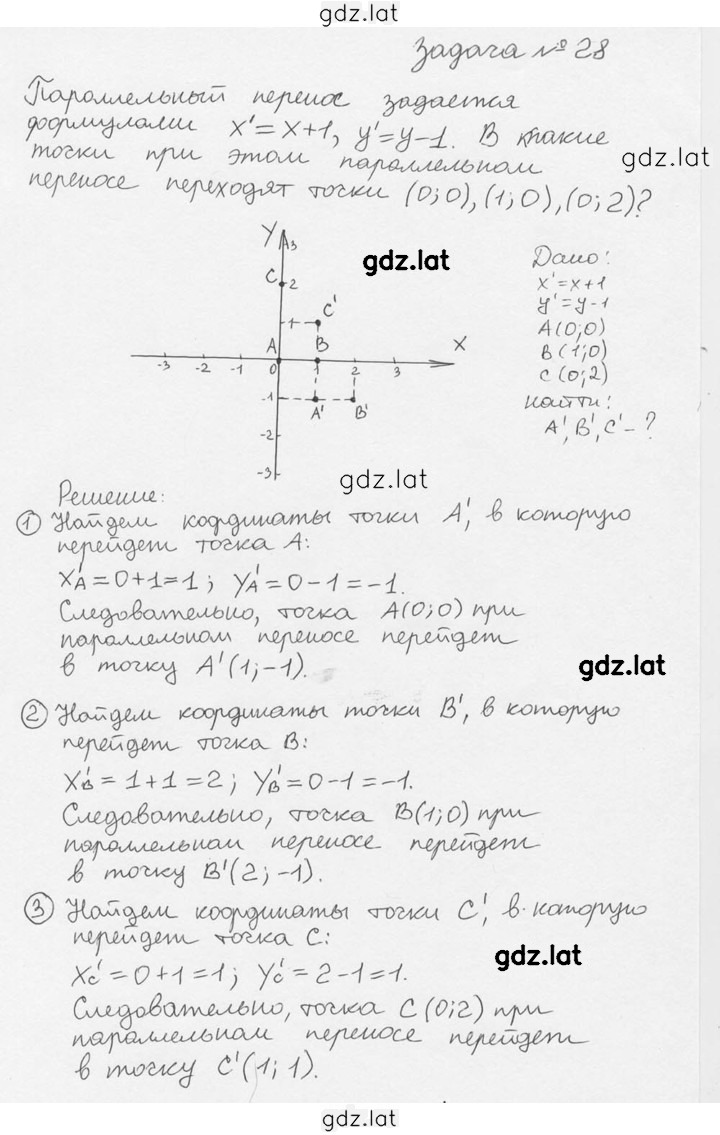 gdz.lat
Задача № 28
Параллельный перенос задается
формулами x'=x+1, y'=y-1. В какие
точки при этом параллельном
gdz.lat
переносе переходят точки (0;0),(1;0),(0;2)?
Y
3
gdz.lat
C 2
1 C'
A B X
-3 -2 -1 0 1 2 3
-1 A' B'
-2
-3
Дано:
x'=x+1
y'=y-1
A(0;0)
B(1;0)
C(0;2)
Найти:
A', B', C' - ?
gdz.lat
Решение:
1 Найдем координаты точки A', в которую
перейдет точка A:
XA' = 0+1=1; YA' = 0-1=-1.
Следовательно, точка A(0;0) при
параллельном переносе перейдет
в точку A'(1;-1).
gdz.lat
2 Найдем координаты точки B', в которую
перейдет точка B:
XB' = 1+1=2; YB' = 0-1=-1.
Следовательно, точка B(1;0) при
параллельном переносе перейдет
в точку B'(2;-1).
3 Найдем координаты точки C', в которую
перейдет точка C:
gdz.lat
XC' = 0+1=1; YC' = 2-1=1.
Следовательно, точка C(0;2) при
параллельном переносе перейдет
в точку C'(1;1).
gdz.lat